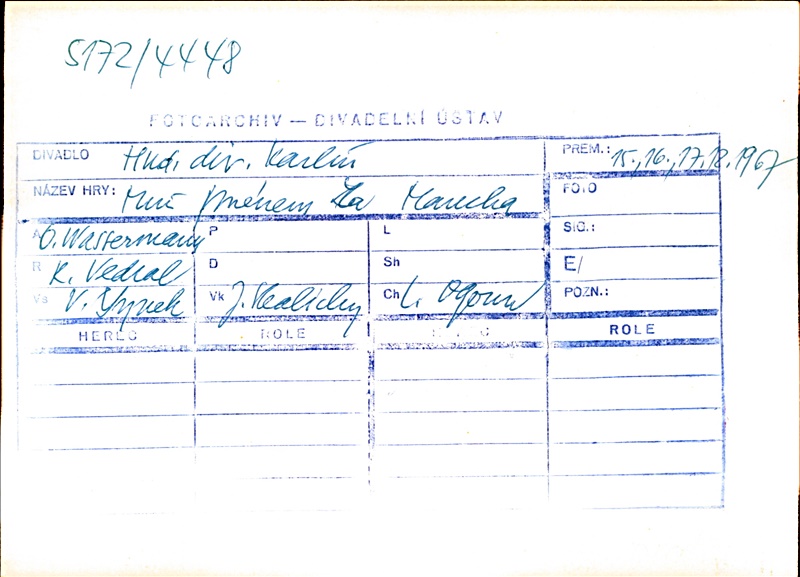 S172/4448
FOTOARCHIV — DIVADELNÍ ÚSTAV
DIVADLO Hud. div. Karlín PREM.: 15., 16., 17., 18. 1967
NÁZEV HRY: Muž jménem La Mancha FOTO
A D. Wasserman P L SIG.:
R K. Vedral D Sh E/
Vs V. Vk J. Ch L. Ogoun POZN.:
HEREC ROLE HEREC ROLE